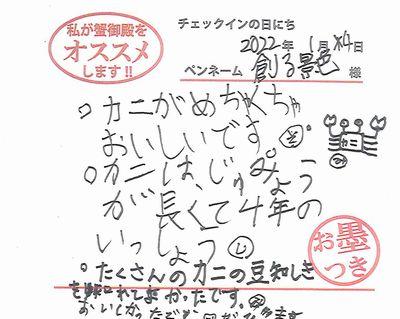 私が蟹御殿を
オススメ
します!!
チェックインの日にち
2022年1月4日
ペンネーム 創る景色 様
○カニがめちゃくちゃ
おいしいです。
カニ
○カニは、じゅみょう
が長くて4年の
いっしょう
お墨
つき
○たくさんのカニの豆知しき
を知れてよかったです。